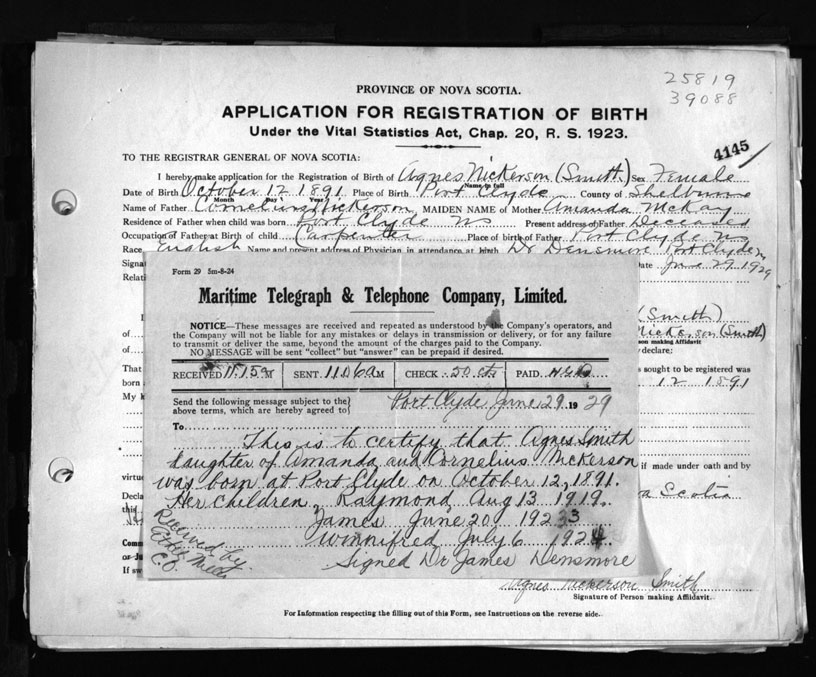 25819
39088
PROVINCE OF NOVA SCOTIA.
APPLICATION FOR REGISTRATION OF BIRTH
Under the Vital Statistics Act, Chap. 20, R. S. 1923.
4145
TO THE REGISTRAR GENERAL OF NOVA SCOTIA:
I hereby make application for the Registration of Birth of Agnes Nickerson (Smith) Sex Female
Name in full
Date of Birth October 12 1891 Place of Birth Port Clyde County of Shelburne
Month Day Year
Name of Father Cornelius Nickerson MAIDEN NAME of Mother Amanda McKay
Residence of Father when child was born Port Clyde NS Present address of Father Deceased
Occupation of Father at Birth of child Carpenter Place of birth of Father Port Clyde NS
Race English Name and present address of Physician in attendance at birth Dr Densmore Port Clyde
Signa Date June 29 1929
Relati
(Smith)
of Nickerson (Smith)
son making Affidavit
of declare:
That s sought to be registered was
born 12 1891
My k
if made under oath and by
virtue
Decla a Scotia
this
Comm
or Ju
If sw
Form 29 5m-8-24
Maritime Telegraph & Telephone Company, Limited.
NOTICE—These messages are received and repeated as understood by the Company's operators, and
the Company will not be liable for any mistakes or delays in transmission or delivery, or for any failure
to transmit or deliver the same, beyond the amount of the charges paid to the Company.
NO MESSAGE will be sent "collect" but "answer" can be prepaid if desired.
RECEIVED 11.15 a M SENT 11.06 a M CHECK 50 cts PAID
Send the following message subject to the
above terms, which are hereby agreed to
Port Clyde June 29 1929
To
This is to certify that Agnes Smith
daughter of Amanda and Cornelius Nickerson
was born at Port Clyde on October 12, 1891.
Her children, Raymond Aug 13 1919.
James June 20 1923
Winnifred July 6 1924
Signed Dr James Densmore
Received by
C.O.
Agnes Nickerson Smith
Signature of Person making Affidavit.
For Information respecting the filling out of this Form, see Instructions on the reverse side.